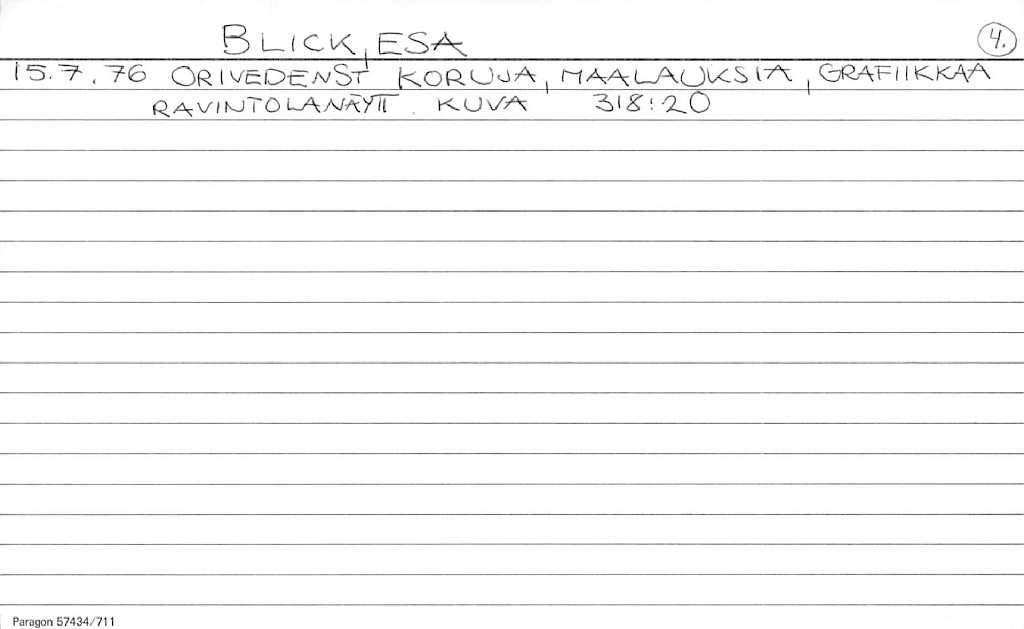 BLICK, ESA
4.
15.7.76 ORIVEDENST KORUJA, MAALAUKSIA, GRAFIIKKAA
RAVINTOLANÄYTT. KUVA 318:20
Paragon 57434/711